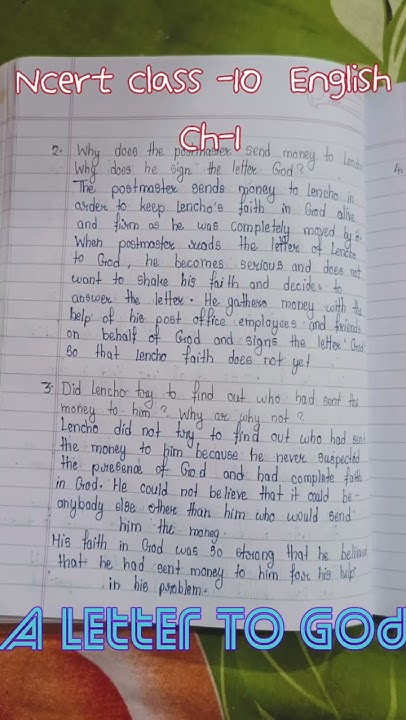 Ncert class -10 English
Ch-1
2. Why does the postmaster send money to Lencho
Why does he sign the letter God?
The postmaster sends money to Lencho in
order to keep Lencho's faith in God alive
and firm as he was completely moved by it.
When postmaster reads the letter of Lencho
to God, he becomes serious and does not
want to shake his faith and decides to
answer the letter. He gathers money with the
help of his post office employees and friends
on behalf of God and signs the letter 'God'
so that Lencho faith does not get
3. Did Lencho try to find out who had sent the
money to him? Why are why not?
Lencho did not try to find out who had sent
the money to him because he never suspected
the presence of God and had complete faith
in God. He could not believe that it could be-
anybody else other than him who would send
him the money.
His faith in God was so strong that he believed
that he had sent money to him for his help
in his problem.
4.
A Letter to God